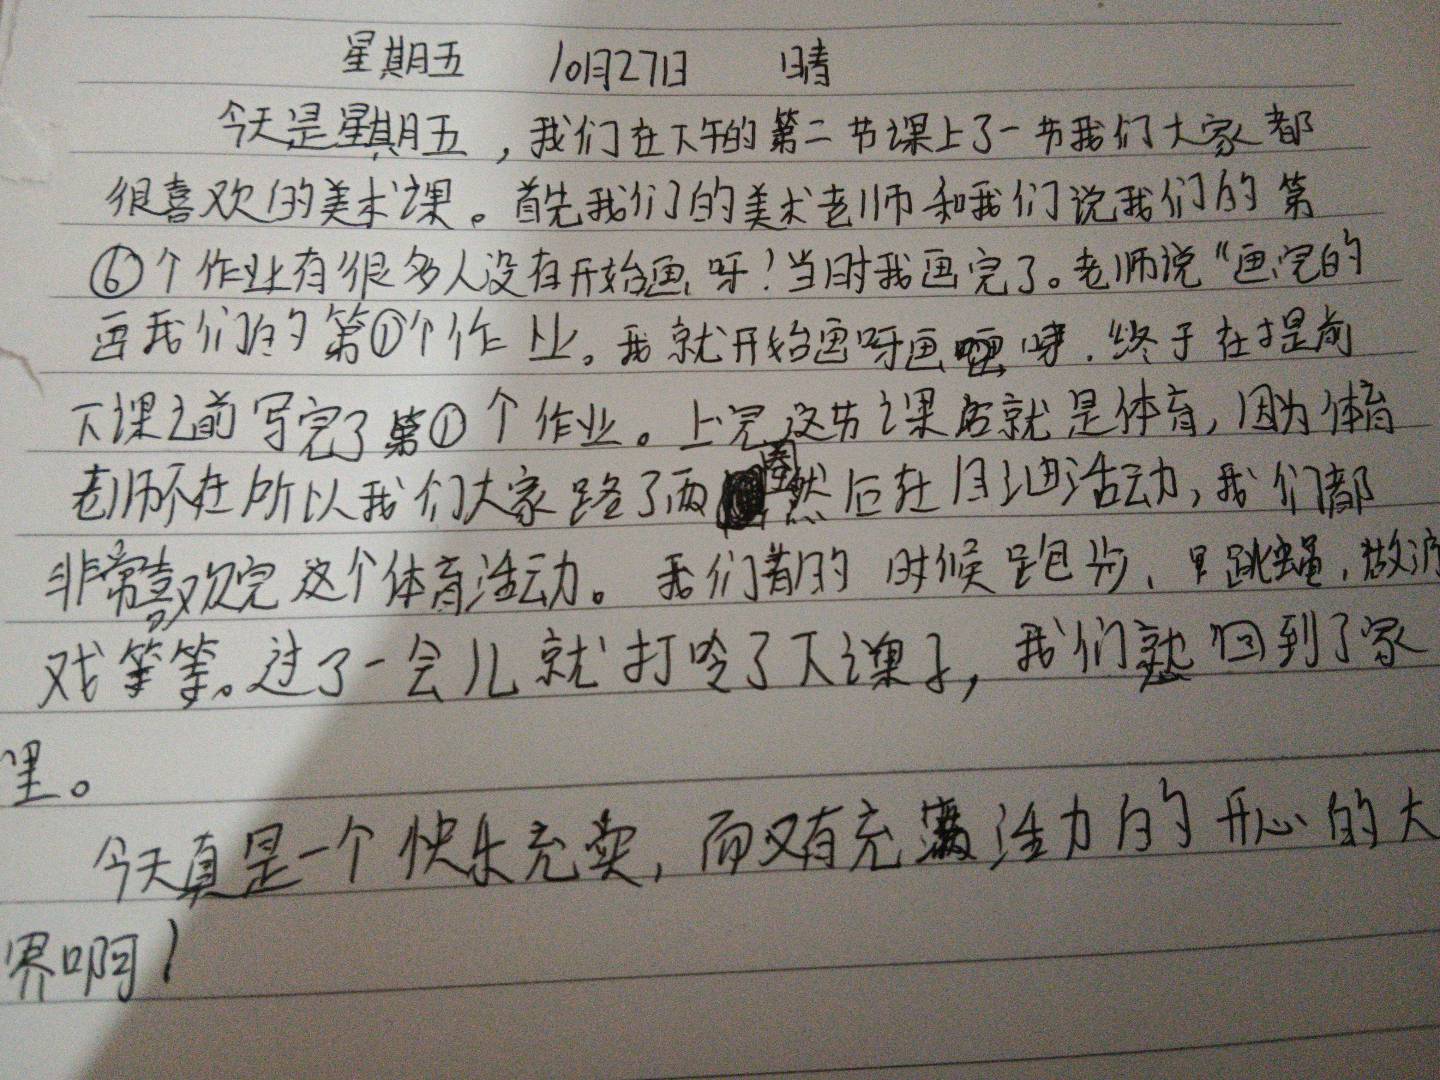 星期五 10月27日 晴
今天是星期五，我们在下午的第二节课上了一节我们大家都
很喜欢的美术课。首先我们的美术老师和我们说我们的第
⑥个作业有很多人没有开始画呀！当时我画完了。老师说“画完的
画我们的第①个作业。我就开始画呀画呀，终于在提前
下课之前写完了第①个作业。上完这节课后就是体育，因为体育
老师不在所以我们大家跑了两圈然后在自由活动，我们都
非常喜欢完这个体育活动。我们有的时候跑步、跳绳，做游
戏等等。过了一会儿就打呤了下课了，我们就回到了家
里。
今天真是一个快乐充实，而又有充满活力的开心的大
界啊！